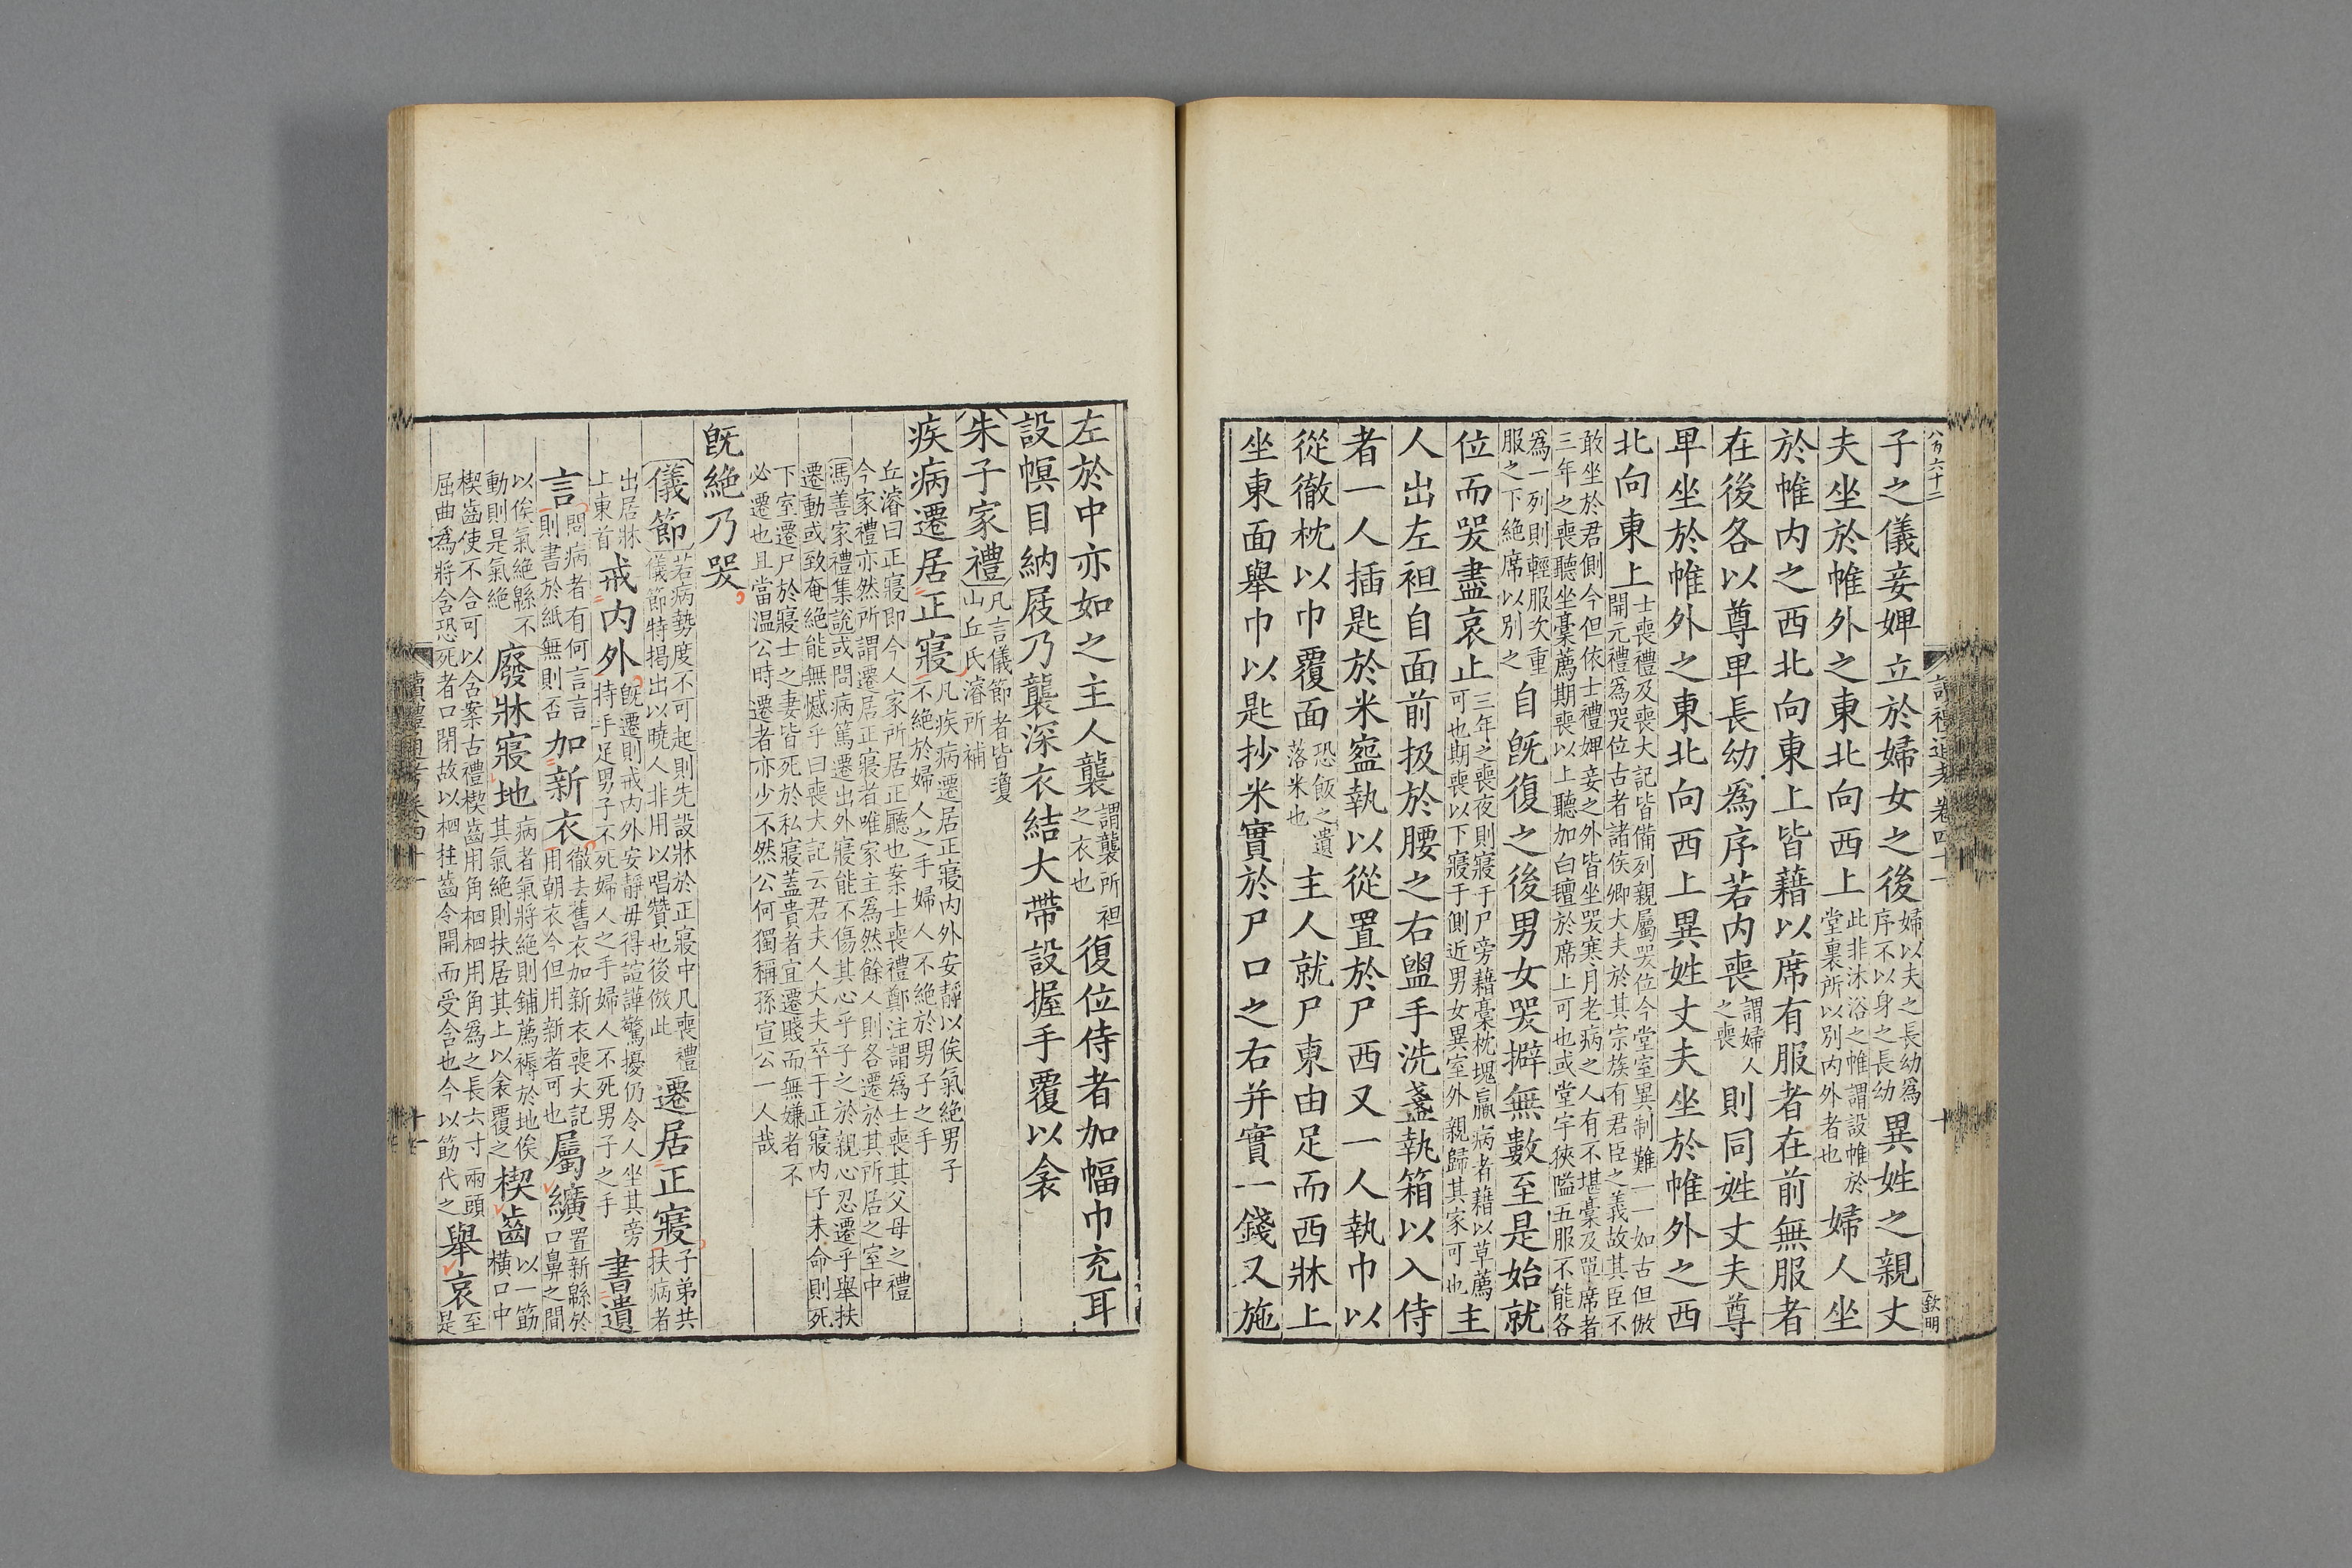 八百六十二
讀禮通考卷四十一
十
欽明
子之儀妾婢立於婦女之後婦以夫之長幼為序不以身之長幼異姓之親丈
夫坐於帷外之東北向西上此非沐浴之帷謂設帷於堂裏所以別內外者也婦人坐
於帷內之西北向東上皆藉以席有服者在前無服者
在後各以尊卑長幼爲序若內喪謂婦人之喪則同姓丈夫尊
卑坐於帷外之東北向西上異姓丈夫坐於帷外之西
北向東上士喪禮及喪大記皆備列親屬哭位今堂室異制難一一如古但倣開元禮爲哭位古者諸侯卿大夫於其宗族有君臣之義故其臣不
敢坐於君側今但依士禮婢妾之外皆坐哭寒月老病之人有不堪藁及單席者三年之喪聽坐藁薦期喪以上聽加白氊於席上可也或堂宇狹隘五服不能各
爲一列則輕服次重服之下絕席以別之自旣復之後男女哭擗無數至是始就
位而哭盡哀止三年之喪夜則寢于尸旁藉藁枕塊羸病者藉以草薦可也期喪以下寢于側近男女異室外親歸其家可也主
人出左袒自面前扱於腰之右盥手洗盞執箱以入侍
者一人插匙於米盌執以從置於尸西又一人執巾以
從徹枕以巾覆面恐飯之遺落米也主人就尸東由足而西牀上
坐東面舉巾以匙抄米實於尸口之右并實一錢又施
左於中亦如之主人襲謂襲所袒之衣也復位侍者加幅巾充耳
設幎目納屐乃襲深衣結大帶設握手覆以衾
朱子家禮凡言儀節者皆瓊山丘氏濬所補
疾病遷居正寢凡疾病遷居正寢內外安靜以俟氣絕男子不絕於婦人之手婦人不絕於男子之手
丘濬曰正寢即今人家所居正廳也案士喪禮鄭注謂爲士喪其父母之禮
今家禮亦然所謂遷居正寢者唯家主爲然餘人則各遷於其所居之室中
馮善家禮集說或問病篤遷出外寢能不傷其心乎子之於親心忍遷乎舉扶
遷動或致奄絕能無憾乎曰喪大記云君夫人大夫卒于正寢內子未命則死
下室遷尸於寢士之妻皆死於私寢蓋貴者宜遷賤而無嫌者不
必遷也且當温公時遷者亦少不然公何獨稱孫宣公一人哉
旣絕乃哭
儀節若病勢度不可起則先設牀於正寢中凡喪禮儀節特揭出以曉人非用以唱贊也後倣此遷居正寢子弟共扶病者
出居牀上東首戒內外旣遷則戒內外安靜毋得諠譁驚擾仍令人坐其旁持手足男子不死婦人之手婦人不死男子之手書遺
言問病者有何言言則書於紙無則否加新衣徹去舊衣加新衣喪大記用朝衣今但用新者可也屬纊置新緜於口鼻之間
以俟氣絕緜不動則是氣絕廢牀寢地病者氣將絕則鋪薦褥於地俟其氣絕則扶居其上以衾覆之楔齒以一筯橫口中
楔齒使不合可以含案古禮楔齒用角柶柶用角爲之長六寸兩頭屈曲爲將含恐死者口閉故以柶拄齒令開而受含也今以筯代之舉哀至是
讀禮通考卷四十一
十一